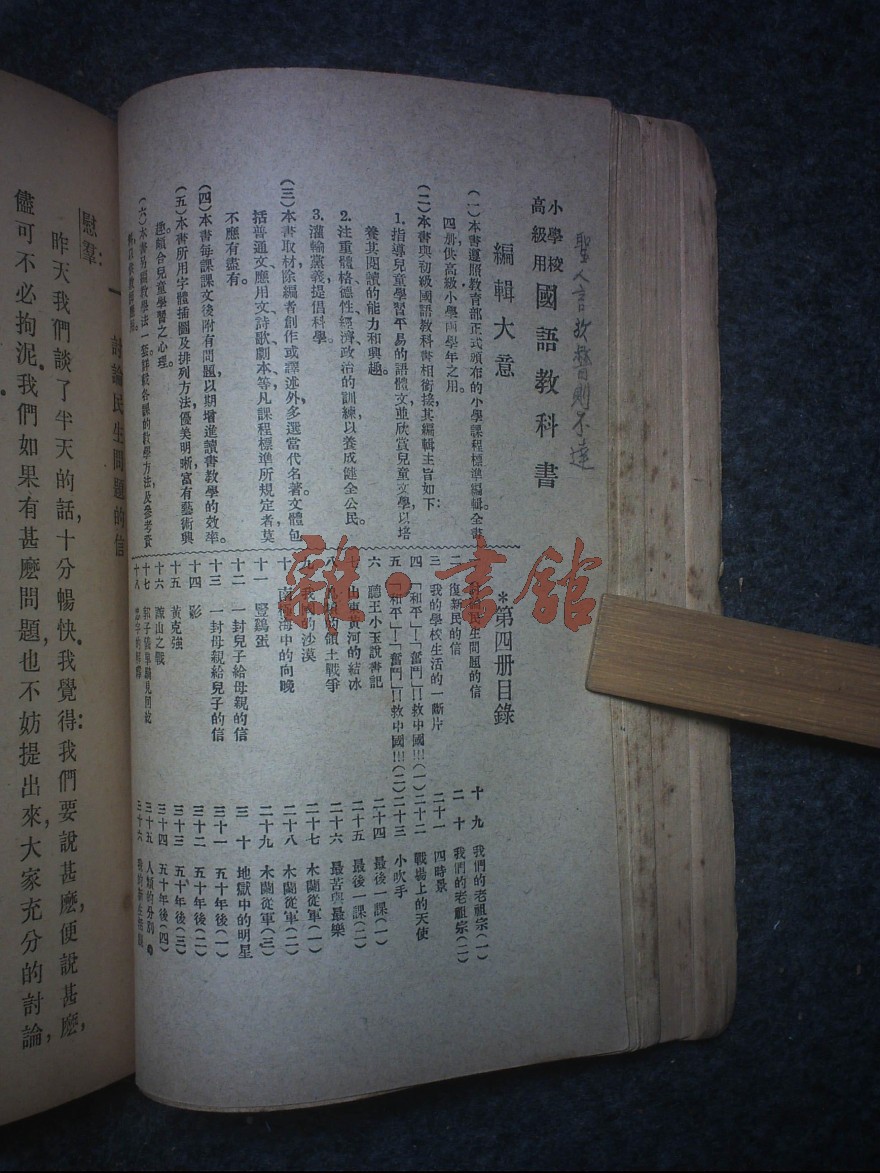 小學校
高級用
國語教科書
編輯大意
(一)本書遵照教育部正式頒布的小學課程標準編輯。全書
四册,供高級小學兩學年之用。
(二)本書與初級國語教科書相銜接,其編輯主旨如下:
1.指導兒童學習平易的語體文,並欣賞兒童文學,以培
養其閱讀的能力和興趣。
2.注重體格、德性、經濟、政治的訓練,以養成健全公民。
3.灌輸黨義,提倡科學。
(三)本書取材,除編者創作或譯述外,多選當代名著。文體包
括普通文、應用文、詩歌、劇本等,凡課程標準所規定者,莫
不應有盡有。
(四)本書每課課文後附有問題,以期增進讀書敎學的效率。
(五)本書所用字體插圖及排列方法,優美明晰,富有藝術興
趣,頗合兒童學習之心理。
(六)本書另編教學法一套,詳載各課的教學方法及參考資
*第四册目錄
一 討論民生問題的信
二 復新民的信
三 我的學校生活的一斷片
四 「和平」「奮鬥」!救中國!!!(一)
五 「和平」「奮鬥」!救中國!!!(二)
六 聽王小玉說書記
七 山東黃河的結冰
八 的領土戰爭
九 我國的沙漠
十 南極海中的向晚
十一 豎鷄蛋
十二 一封兒子給母親的信
十三 一封母親給兒子的信
十四 影
十五 黃克強
十六 之戰
十七 郭子儀單騎見回紇
十八
十九 我們的老祖宗(一)
二十 我們的老祖宗(二)
二十一 四時景
二十二 戰場上的天使
二十三 小吹手
二十四 最後一課(一)
二十五 最後一課(二)
二十六 最苦與最樂
二十七 木蘭從軍(一)
二十八 木蘭從軍(二)
二十九 木蘭從軍(三)
三十 地獄中的明星
三十一 五十年後(一)
三十二 五十年後(二)
三十三 五十年後(三)
三十四 五十年後(四)
三十五 人類的分別
三十六
一 討論民生問題的信
慰羣:
昨天我們談了半天的話,十分暢快。我覺得:我們要說甚麽,便說甚麽,
儘可不必拘泥。我們如果有甚麽問題,也不妨提出來,大家充分的討論,
雜·書館